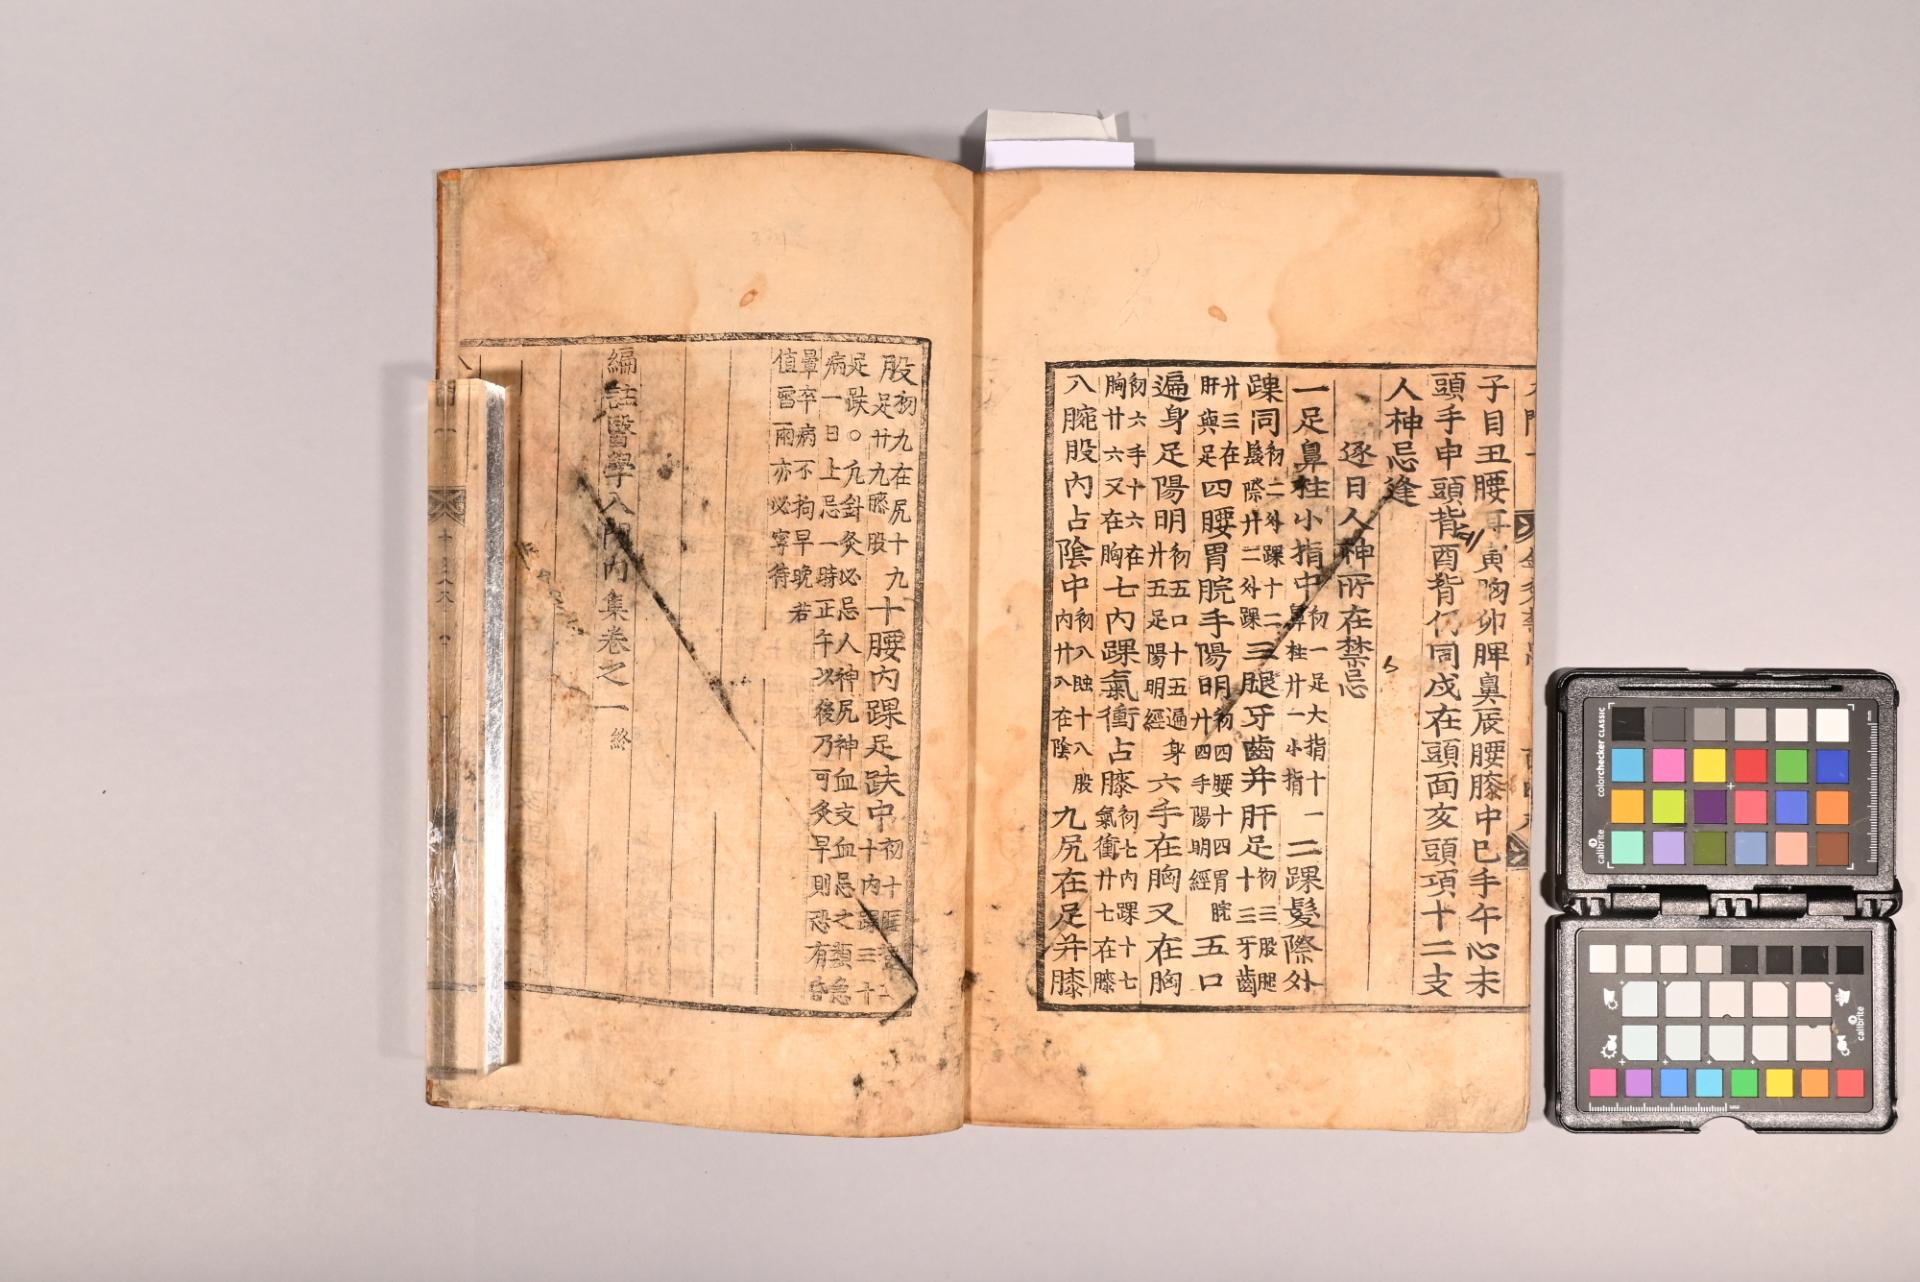 子目丑腰耳寅胸卯脾鼻辰腰膝中巳手午心未
頭手申頭背酉背仍同戌在頭面亥頭項十二支
人神忌逢
逐日人神所在禁忌
一足鼻柱小指中
初一足大指十一
鼻柱廿一小指
二踝髮際外
踝同
初二外踝十二
髮際廿二外踝
三腿牙齒并肝足
初三股腿
十三牙齒
廿三在
肝與足
四腰胃脘手陽明
初四腰十四胃脘
廿四手陽明經
五口
遍身足陽明
初五口十五遍身
廿五足陽明經
六手在胸又在胸
初六手十六在
胸廿六又在胸
七內踝氣衝占膝
初七內踝十七
氣衝廿七在膝
八腕股內占陰中
初八
十八股
內廿八在陰
九尻在足并膝
股
初九在尻十九
足廿九膝股
十腰內踝足趺中
初十腰
十內踝三十
足趺○凡針灸必忌人神尻神血支血忌之類急
病一日上忌一時正午以後乃可灸早則恐有昏
暈卒病不拘早晚若
值雷雨亦必寧待
編註醫學入門內集卷之一 終
334
colorchecker CLASSIC
calibrite
calibrite